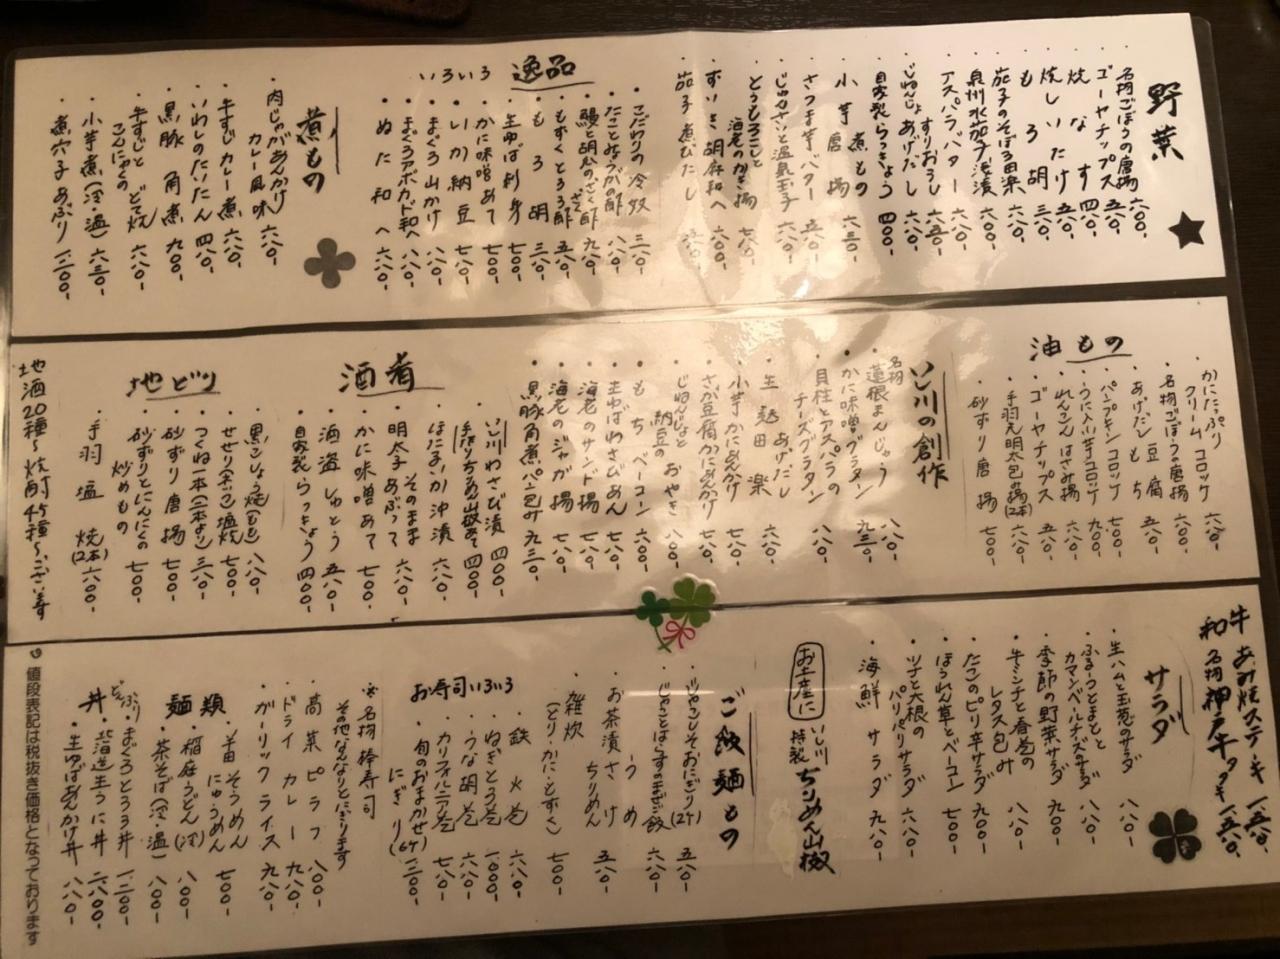 野菜
・名物ごぼうの唐揚 六〇〇-
・ゴーヤチップス 五八〇-
・焼なす 四八〇-
・焼しいたけ
・もろ胡 三八〇-
・茄子のそぼろ田楽
・泉州水茄子浅漬
・アスパラバター
・じねんじょ すりおろし
あげだし
・自家製らっきょう 四〇〇-
・小芋煮もの
・小芋唐揚 六三〇-
・さつま芋バター 五八〇-
・じゅんさいと温泉玉子
・とうもろこしと
海老のかき揚
・ずいき胡麻和へ
・茄子煮びたし
逸品
いろいろ
・こだわりの冷奴 三八〇-
・たことみょうがの酢
・鰻と胡瓜のざく酢 九八〇-
・もずくとろろ酢 五八〇-
・もろ胡 三八〇-
・生ゆば刺身 七八〇-
・かに味噌あて 七〇〇-
・いか納豆 七八〇-
・まぐろ山かけ 八八〇-
・まぐろアボガド和へ 八八〇-
・ぬた和へ 六八〇-
煮もの
・肉じゃがあんかけ
カレー風味
・牛すじカレー煮 六八〇-
・いわしのたいたん 四八〇-
・黒豚角煮 九八〇-
・牛すじと
こんにゃくの どて焼 六八〇-
・小芋煮(冷・温) 六三〇-
・煮穴子あぶり
油もの
・かにたっぷり
クリームコロッケ 六八〇-
・名物ごぼうの唐揚 六〇〇-
・あげだし豆腐
・パンプキンコロッケ
・うに入り里芋コロッケ 九〇〇-
・れんこんはさみ揚 六八〇-
・ゴーヤチップス 五八〇-
・手羽元明太包み揚(2本) 六八〇-
・砂ずり唐揚 七〇〇-
いし川の創作
名物
・蓮根まんじゅう 八八〇-
・かに味噌グラタン 九三〇-
・貝柱とアスパラの
チーズグラタン
・生麩田楽
・小芋かにあんかけ
・さが豆腐かにあんかけ
・じねんじょと
納豆の おやき 八〇〇-
・もちベーコン 六〇〇-
・生ゆばわさびあん 七八〇-
・海老のサンド揚 七八〇-
・海老のジャガ揚 七八〇-
・黒豚角煮パン包み 九三〇-
酒肴
・いし川わさび漬 四〇〇-
・手作りちりめん山椒
・ほたるいか沖漬 六八〇-
・明太子 そのまま
あぶって 六八〇-
・かに味噌あて 七〇〇-
・酒盗しゅとう 五八〇-
・自家製らっきょう 四〇〇-
地どり
・黒こしょう焼(もも) 八八〇-
・せせり塩焼 七八〇-
・つくね一本(二本より) 三八〇-
・砂ずり唐揚 七〇〇-
・砂ずりとにんにくの
炒めもの
・手羽塩焼(2本) 六八〇-
地酒20種〜焼酎45種〜ございます
和牛あみ焼ステーキ
名物神戸牛タタキ
サラダ
・生ハムと玉葱のサラダ 八八〇-
・ふるーつとまとと
カマンベールチーズサラダ 八八〇-
・季節の野菜サラダ 九八〇-
・牛ミンチと春巻の
レタス包み
・たこのピリ辛サラダ 九八〇-
・ほうれん草とベーコン 七〇〇-
・ツナと大根の
パリパリサラダ 六八〇-
・海鮮サラダ 九八〇-
お土産に いし川特製 ちりめん山椒
ご飯麺もの
・じゃこしそおにぎり(2ケ) 五八〇-
・じゃことはらすのまぜご飯 六八〇-
・お茶漬 うめ
さけ
ちりめん 五八〇-
・雑炊
(とり・かに・もずく) 七〇〇-
お寿司いろいろ
・鉄火巻 六八〇-
・ねぎとろ巻
・うな胡巻
・カリフォルニア巻 七八〇-
・旬のおまかせ
にぎり(6ケ)
※名物棒寿司
その他なんなりとにぎります
・高菜ピラフ 八〇〇-
・ドライカレー 九八〇-
・ガーリックライス 九八〇-
麺類
・半田そうめん
にゅうめん 七〇〇-
・稲庭うどん(冷) 八〇〇-
・茶そば(冷・温) 八〇〇-
どんぶり
丼
・まぐろとろろ丼
・北海道生うに丼
・生ゆばあんかけ丼 八八〇-
値段表記は税抜き価格となっております